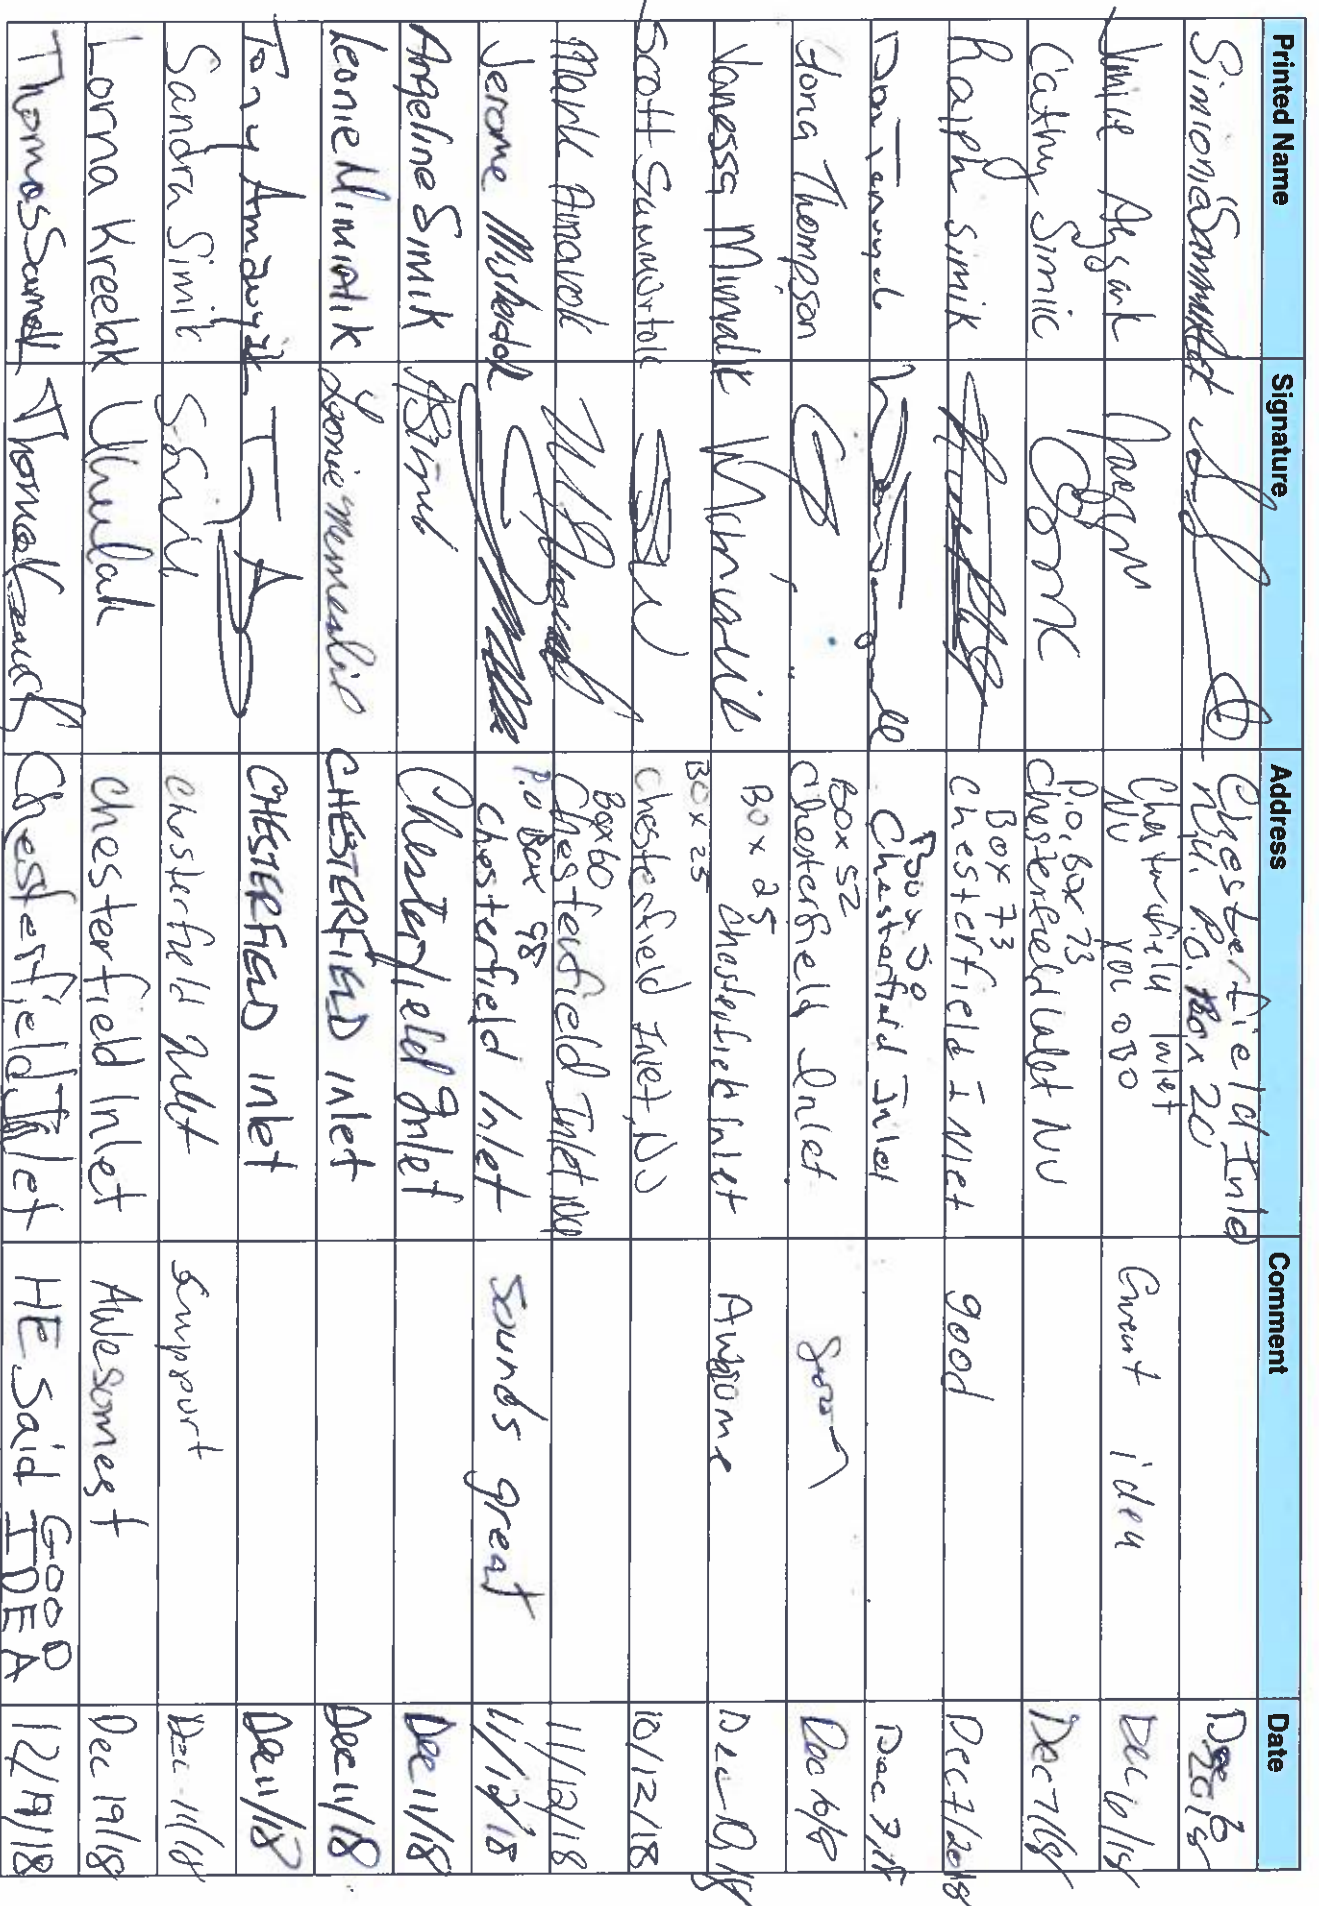 Printed Name Signature Address Comment Date
Simionie Sammurtok Chesterfield Inlet
NU. P.O. Box 20 Dec 6
2018
Chesterfield Inlet
NU X0C 0B0 Great idea Dec 6/18
Cathy Simic P.O. Box 73
Chesterfield Inlet NU Dec 7/18
Ralph Simik Box 73
Chesterfield Inlet good Dec 7/2018
Don Box 30
Chesterfield Inlet Dec 7, 18
Thompson Box 52
Chesterfield Inlet Dec 10/18
Vanessa Mimialik Box 25
Chesterfield Inlet Awsome
Scott Sammurtok Box 25
Chesterfield Inlet, NU 10/12/18
Mark Amarok Box 60
Chesterfield Inlet NU 11/12/18
Jerome P.O Box 98
Chesterfield Inlet Sounds great 11/12/18
Angeline Simik ASimik Chesterfield Inlet Dec 11/18
Leonie Mimialik Leonie Mimialik CHESTERFIELD Inlet Dec 11/18
Tony Amauyak CHESTERFIELD Inlet Dec 11/18
Sandra Simik S. Simik Chesterfield Inlet Support Dec 11/18
Lorna Kreelak Chesterfield Inlet Awesomest Dec 19/18
Thomas Chesterfield Inlet HE Said GOOD
IDEA 12/19/18